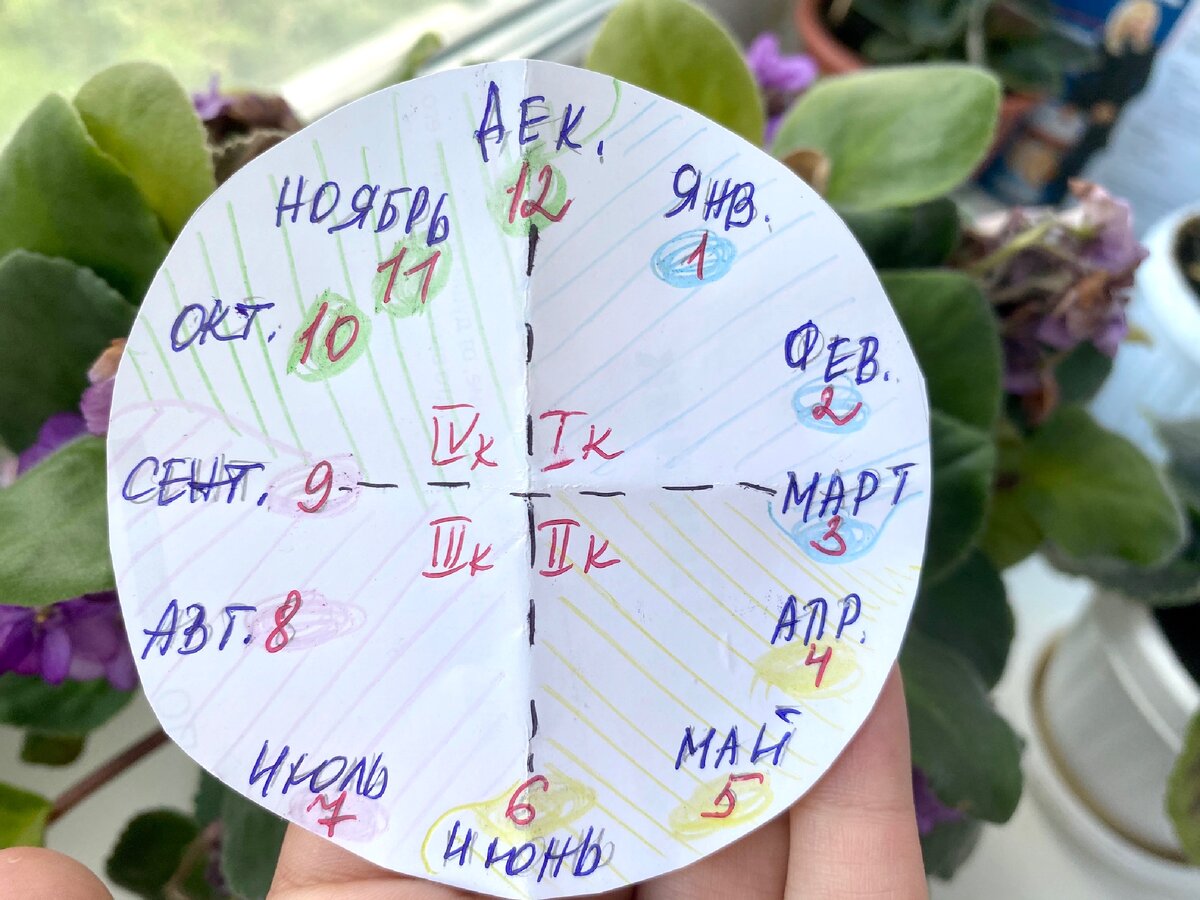 ДЕК.
12
ЯНВ.
1
ФЕВ.
2
МАРТ
3
АПР.
4
МАЙ
5
6
ИЮНЬ
ИЮЛЬ
7
АВГ. 8
СЕНТ. 9
ОКТ. 10
НОЯБРЬ
11
IVк Iк
IIIк IIк